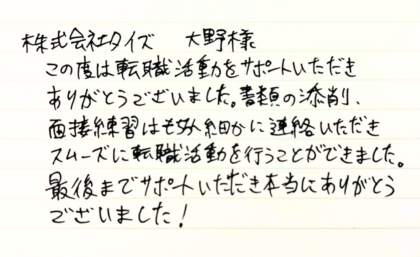 株式会社タイズ 大野様
この度は転職活動をサポートいただき
ありがとうございました。書類の添削、
面接練習はもちろん細かに連絡いただき
スムーズに転職活動を行うことができました。
最後までサポートいただき本当にありがとう
ございました!